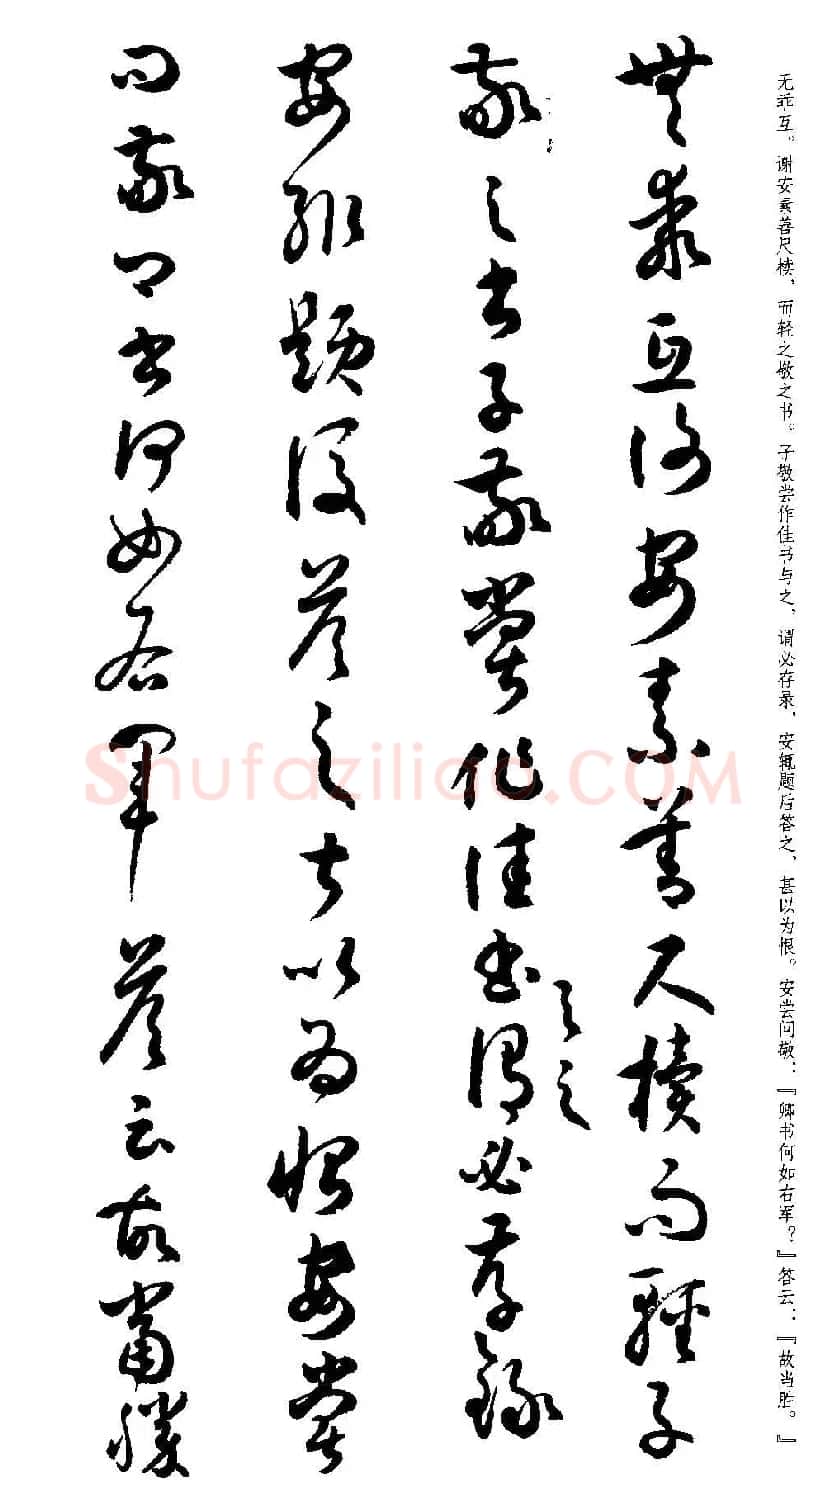 无乖互。谢安素善尺椟，而轻之敬之书。子敬尝作佳书与之，谓必存录，安辄题后答之，甚以为恨。安尝问敬：『卿书何如右军？』答云：『故当胜。』
無乖互謝安素善尺櫝而輕子
敬之書子敬嘗作佳書與之謂必存錄
安輒題後答之甚以為恨安嘗
問敬卿書何如右軍答云故當勝
Shufaziliao.COM